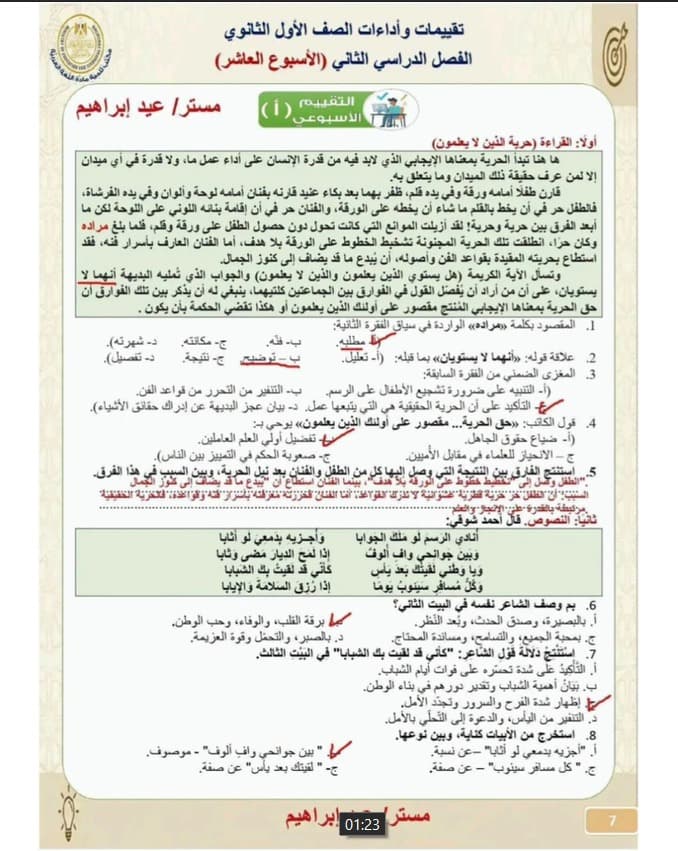 تقييمات وأداءات الصف الأول الثانوي
الفصل الدراسي الثاني (الأسبوع العاشر)
مستر/ عيد إبراهيم
التقييم
الأسبوعي
(أ)
أولًا: القراءة (حرية الذين لا يعلمون)
ها هنا تبدأ الحرية بمعناها الإيجابي الذي لابد فيه من قدرة الإنسان على أداء عمل ما، ولا قدرة في أي ميدان
إلا لمن عرف حقيقة ذلك الميدان وما يتعلق به.
قارن طفلًا أمامه ورقة وفي يده قلم، ظفر بهما بعد بكاء عنيد قارنه بفنان أمامه لوحة وألوان وفي يده الفرشاة،
فالطفل حر في أن يخط بالقلم ما شاء أن يخطه على الورقة، والفنان حر في أن إقامة بنائه اللوني على اللوحة لكن ما
أبعد الفرق بين حرية وحرية! لقد أزيلت الموانع التي كانت تحول دون حصول الطفل على ورقة وقلم، فلما بلغ مراده
وكان حرًا، انطلقت تلك الحرية المجنونة تشخبط الخطوط على الورقة بلا هدف، أما الفنان العارف بأسرار فنه، فقد
استطاع بحريته المقيدة بقواعد الفن وأصوله، أن يُبدع ما قد يضاف إلى كنوز الجمال.
وتسأل الآية الكريمة (هل يستوي الذين يعلمون والذين لا يعلمون) والجواب الذي تُمليه البديهة أنهما لا
يستويان، على أن من أراد أن يُفصّل القول في الفوارق بين الجماعتين كلتيهما، ينبغي له أن يذكر بين تلك الفوارق أن
حق الحرية بمعناها الإيجابي المُنتج مقصور على أولئك الذين يعلمون أو هكذا تقضي الحكمة بأن يكون .
1. المقصود بكلمة «مراده» الواردة في سياق الفقرة الثانية:
(أ- مطلبه. ب- فنّه. ج- مكانته. د- شهرته).
2. علاقة قوله: «أنهما لا يستويان» بما قبله: (أ- تعليل. ب – توضيح. ج- نتيجة. د- تفصيل).
3. المغزى الضمني من الفقرة السابقة:
(أ- التنبيه على ضرورة تشجيع الأطفال على الرسم. ب- التنفير من التحرر من قواعد الفن.
ج- التأكيد على أن الحرية الحقيقية هي التي يتبعها عمل. د- بيان عجز البديهة عن إدراك حقائق الأشياء).
4. قول الكاتب: «حق الحرية... مقصور على أولئك الذين يعلمون» يوحي بـ:
(أ- ضياع حقوق الجاهل. ب- تفضيل أولي العلم العاملين.
ج – الانحياز للعلماء في مقابل الأميين. ج- صعوبة الحكم في التمييز بين الناس).
5. استنتج الفارق بين النتيجة التي وصل إليها كل من الطفل والفنان بعد نيل الحرية، وبين السبب في هذا الفرق.
"الطفل وصل إلى "تخطيط خطوط على الورقة بلا هدف"، بينما الفنان استطاع أن "يبدع ما قد يضاف إلى كنوز الجمال
السبب: أن الطفل حر حرية فطرية عشوائية لا تدرك القواعد، أما الفنان فحريته معرفته بأسرار فنه وقواعده، فالحرية الحقيقية
مرتبطة بالقدرة على الإنجاز والعلم
ثانيًا: النصوص. قال أحمد شوقي:
أُنادي الرسمَ لو مَلَكَ الجَوابا وأجزيه بدَمعيَ لو أثابا
وَبَين جوانحي وافٍ ألوفٌ إذا لمَح الديارَ مَضى وَثابا
وَيا وَطَني لَقيتُكَ بَعدَ يَأسٍ كَأنّي قد لَقيتُ بِكَ الشَبابا
وَكُلُّ مُسافِرٍ سَيَئوبُ يَومًا إذا رُزِقَ السَلامَةَ وَالإيابا
6. بم وصف الشاعر نفسه في البيت الثاني؟
أ. بالبصيرة، وصدق الحدث، وبُعد النّظر. ب. برقة القلب، والوفاء، وحب الوطن.
ج. بمحبة الجميع، والتسامح، ومساندة المحتاج. د. بالصبر، والتحمّل وقوة العزيمة.
7. اسْتَنْتِجْ دَلالَةَ قَوْلِ الشَّاعِرِ: "كأني قد لقيت بك الشبابا" في البَيْتِ الثالث.
أ. التَّأكِيدُ على شدة تحسّره على فوات أيام الشباب.
ب. بَيَانُ أهمية الشباب وتقدير دورهم في بناء الوطن.
ج. إظهار شدة الفرح والسرور وتجدّد الأمل.
د. التنفير من اليأس، والدعوة إلى التّحلّي بالأمل.
8. استخرج من الأبيات كناية، وبين نوعها.
أ. "أجزيه بدمعي لو أثابا" –عن نسبة. ب. " بين جوانحي وافٍ ألوف" - موصوف.
ج. " كل مسافر سينوب" – عن صفة. ج- " لقيتك بعد يأس" عن صفة.
مستر/ عيد إبراهيم
01:23
7